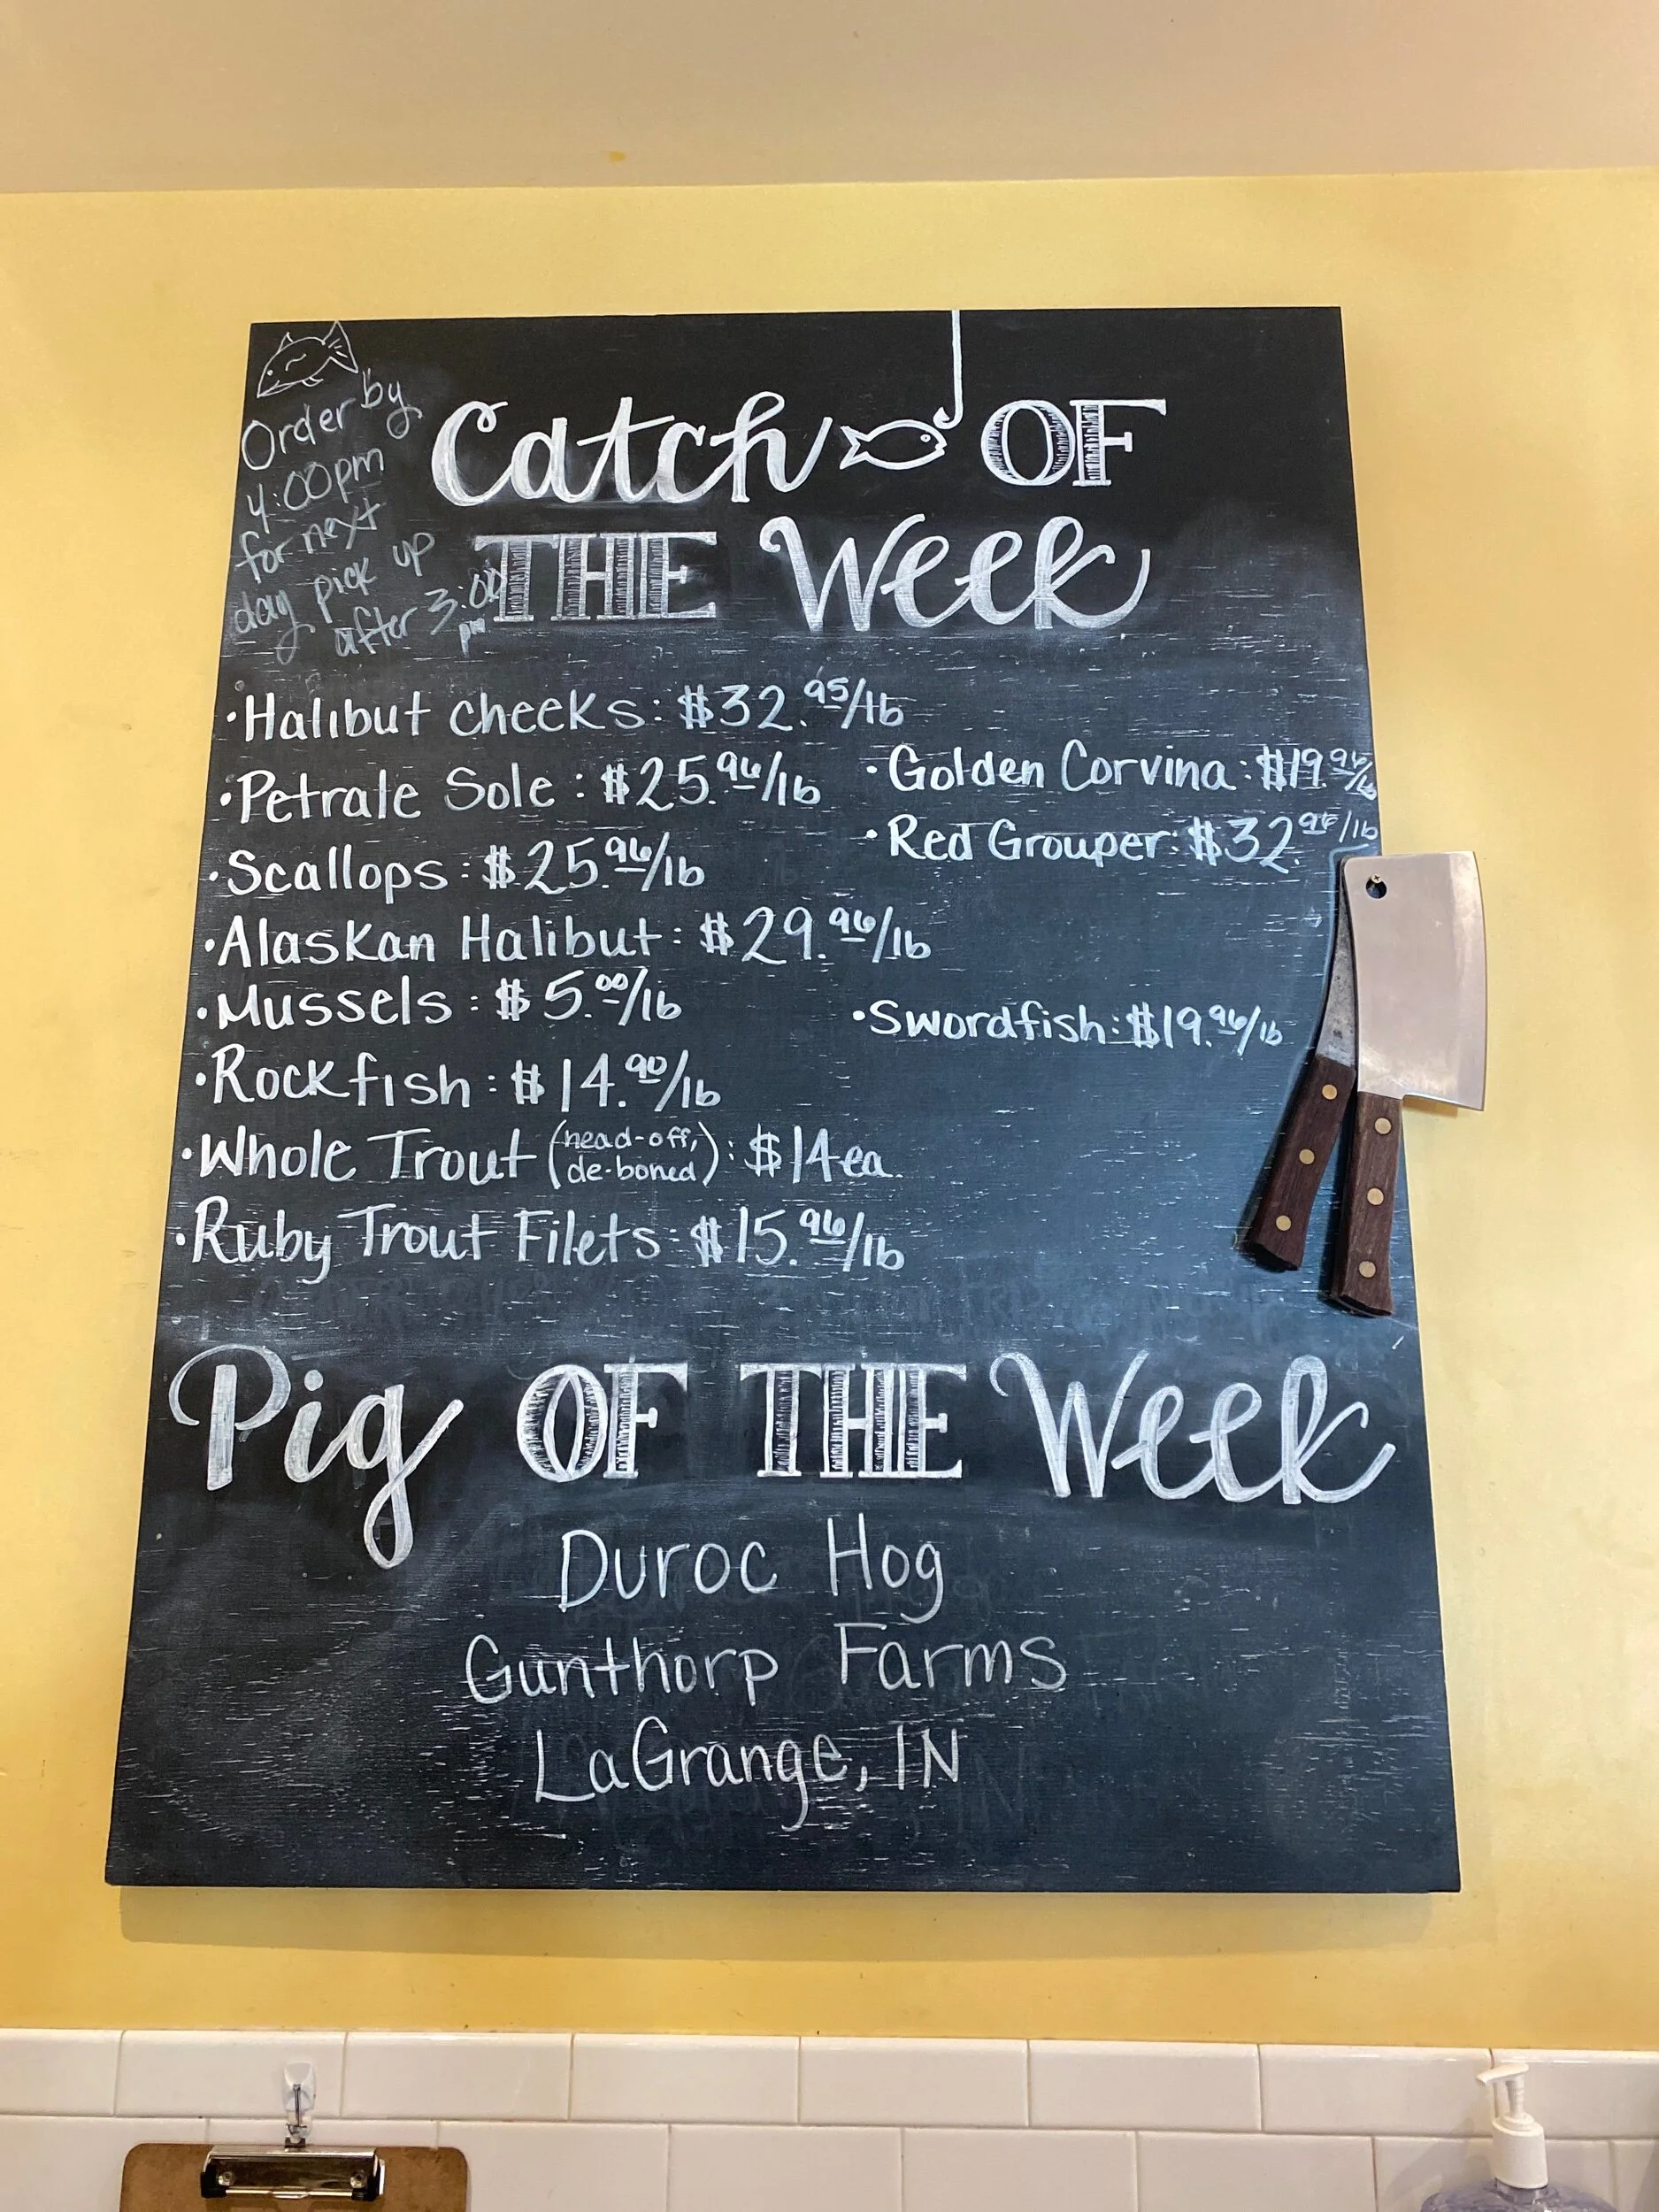 Order by
4:00pm
for next
day pick up
after 3:00
pm
Catch OF
THE Week
• Halibut cheeks: $32.95/lb
• Petrale Sole: $25.96/lb
• Scallops: $25.96/lb
• Alaskan Halibut: $29.96/lb
• Mussels: $5.00/lb
• Rockfish: $14.90/lb
• Whole Trout (head-off, de-boned): $14 ea.
• Ruby Trout Filets: $15.96/lb
• Golden Corvina: $19.96/lb
• Red Grouper: $32.96/lb
• Swordfish: $19.96/lb
Pig OF THE Week
Duroc Hog
Gunthorp Farms
LaGrange, IN